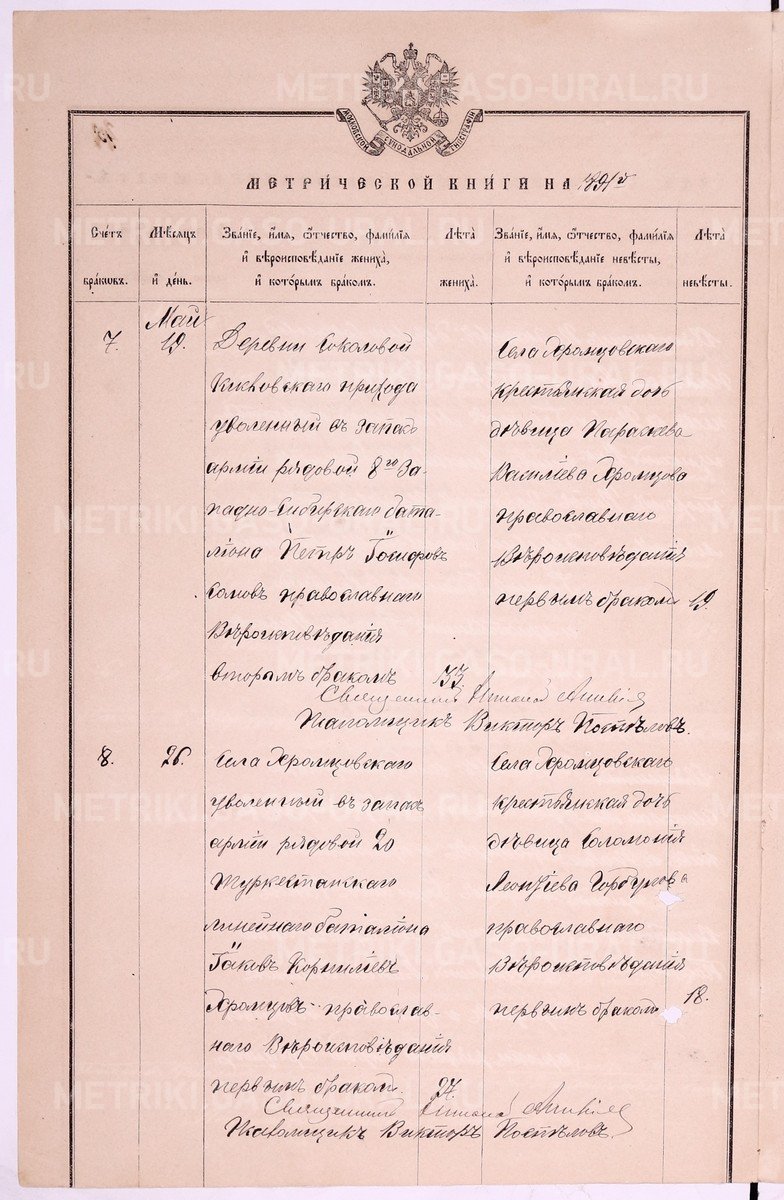 МОСКОВСКОЙ СѴНОДАЛЬНОЙ ТИПОГРАФІИ
МЕТРИ́ЧЕСКОЙ КНИ́ГИ НА 1891й
Сче́тъ
бра́ковъ.
Мѣ́сяцъ
и҆ де́нь.
Зва́нїе, и҆́мѧ, ѻ҆́тчество, фами́лїѧ
и҆ вѣроисповѣ́данїе жениха̀,
и҆ кото́рымъ бра́комъ.
Лѣ́та
жениха̀.
Зва́нїе, и҆́мѧ, ѻ҆́тчество, фами́лїѧ
и҆ вѣроисповѣ́данїе невѣ́сты,
и҆ кото́рымъ бра́комъ.
Лѣ́та
невѣ́сты.
7.
Май
19.
Деревни Соколовой
прихода
уволенный въ запасъ
арміи рядовой 8го За-
падно-Сибирскаго бата-
ліона Петръ Іосифовъ
Сомовъ православнаго
Вѣроисповѣданія
вторымъ бракомъ
33
Села Хромцовскаго
крестьянская дочь
дѣвица Параскева
Василіева Хромцова
православнаго
Вѣроисповѣданія
первымъ бракомъ
19.
Священникъ
Псаломщикъ Викторъ Поспѣловъ.
8.
26.
Села Хромцовскаго
уволенный въ запасъ
арміи рядовой 20
Туркестанскаго
линейнаго баталіона
Іаковъ Корниліевъ
Хромцовъ православ-
наго Вѣроисповѣданія
первымъ бракомъ.
27.
Села Хромцовскаго
крестьянская дочь
дѣвица Соломонія
Леонтіева Горбунова
православнаго
Вѣроисповѣданія
первымъ бракомъ
18.
Священникъ
Псаломщикъ Викторъ Поспѣловъ.
METRIKI.GASO-URAL.RU